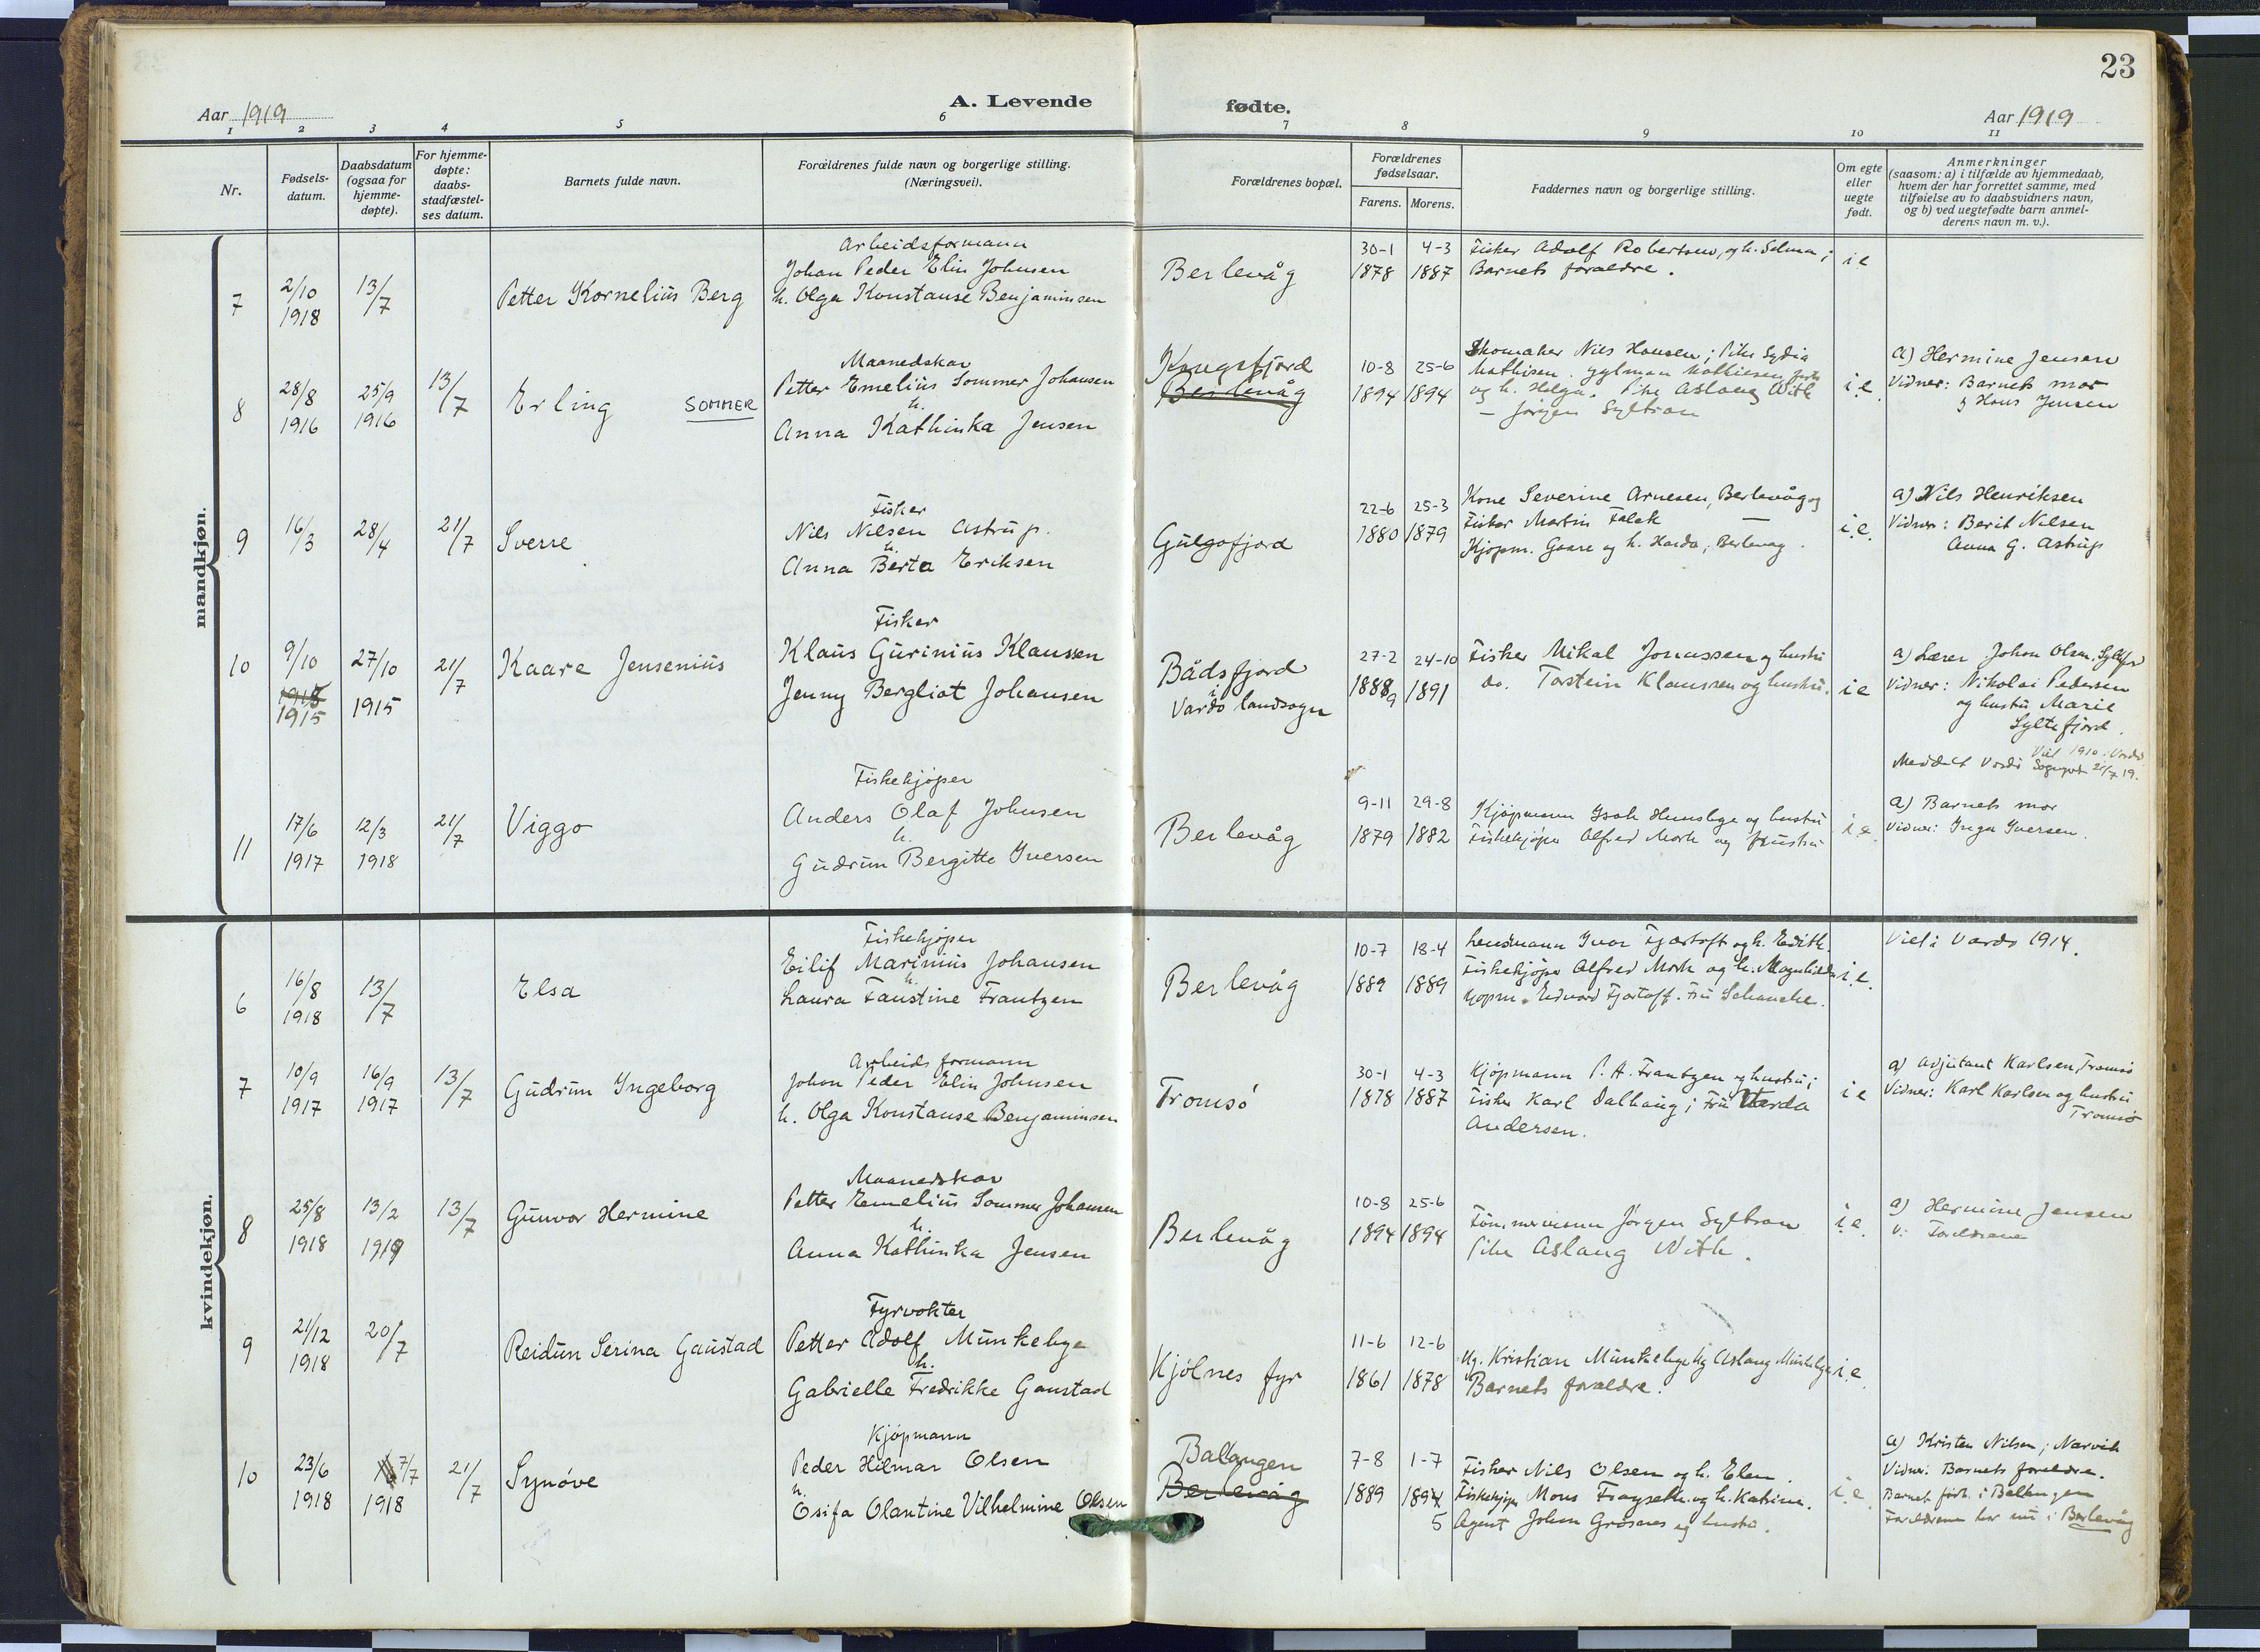 23
A. Levende fødte.
Aar 1919
Aar 1919
1 2 3 4 5 6 7 8 9 10 11
Nr.
Fødsels-
datum.
Daabsdatum
(ogsaa for
hjemme-
døpte).
For hjemme-
døpte:
daabs-
stadfæstel-
ses datum.
Barnets fulde navn.
Forældrenes fulde navn og borgerlige stilling.
(Næringsvei).
Forældrenes bopæl.
Forældrenes
fødselsaar.
Farens. Morens.
Faddernes navn og borgerlige stilling.
Om egte
eller
uegte
født.
Anmerkninger
(saasom: a) i tilfælde av hjemmedaab,
hvem der har forrettet samme, med
tilføielse av to daabsvidners navn,
og b) ved uegtefødte barn anmel-
derens navn m. v.).
mandkjøn.
7
2/10
1918
13/7
Petter Kornelius Berg
Arbeidsformann
Johan Peder Elin Johnsen
h. Olga Konstanse Benjaminsen
Berlevåg
30-1 4-3
1878 1887
Fisker Adolf Robertsen, og h. Selma;
Barnets forældre.
i e
8
28/8
1916
25/9
1916
13/7
Erling SOMMER
Maanedskar
Petter Emelius Sommer Johansen
h.
Anna Kathinka Jensen
Kongsfjord
Berlevåg
10-8 25-6
1894 1894
Skomaker Nils Hansen; Pike Lydia
Mathisen.
og h. Helga. Pike Aslaug With
– Jørgen Syltran
i.e.
a) Hermine Jensen
Vidner: Barnets mor
& Hans Jensen
9
16/3
28/4
21/7
Sverre
Fisker
Nils Nilsen Astrup.
h.
Anna Berta Eriksen
Gulgofjord
22-6 25-3
1880 1879
Kone Severine Arnesen, Berlevåg og
Fisker Martin Falck —
Kjøpm. Gaare og h. Harda, Berlevåg.
i.e.
a) Nils Henriksen
Vidner: Berit Nilsen
Anna G. Astrup
10
9/10
1915
27/10
1915
21/7
Kaare Jensenius
Fisker
Klaus Gurinius Klaussen
Jenny Bergliot Johansen
Bådsfjord
i
Vardø landsogn
27-2 24-10
1889 1891
Fisker Mikal Jonassen og hustru
do. Torstein Klaussen og hustru.
i e
a) Lærer Johan Olsen. Syltefj
Vidner: Nikolai Pedersen
og hustru Marie
Syltefjord.
Viet 1910 i Vardø
Meddelt Vardø Sogneprest 21/7 19.
11
17/6
1917
12/3
1918
21/7
Viggo
Fiskekjøper
Anders Olaf Johnsen
h.
Gudrun Bergitte Iversen
Berlevåg
9-11 29-8
1879 1882
Kjøpmann Isak Hemslye og hustru
Fiskekjøper Alfred Mork og hustru
i.e.
a) Barnets mor
Vidner: Inga Iversen.
kvindekjøn.
6
16/8
1918
13/7
Elsa
Fiskekjøper
Eilif Marinius Johansen
h.
Laura Faustine Frantzen
Berlevåg
10-7 18-4
1889 1889
Lensmann Ivar Fjørtoft og h. Edith.
Fiskekjøper Alfred Mork og h. Magnhilda
Kjøpm. Edvard Fjørtoft. Fru Schanche.
i.e.
Viet i Vardø 1914.
7
10/9
1917
16/9
1917
13/7
Gudrun Ingeborg
Arbeidsformann
Johan Peder Elin Johnsen
h. Olga Konstanse Benjaminsen
Tromsö
30-1 4-3
1878 1887
Kjøpmann P. A. Frantzen og hustru;
Fisker Karl Dalhaug; Fru Herda
Andersen.
i e
a) Adjutant Karlsen, Tromsö
Vidner: Karl Karlsen og hustru
Tromsö
8
25/8
1918
13/2
1919
13/7
Gunvor Hermine
Maanedskar
Petter Emelius Sommer Johansen
h.
Anna Kathinka Jensen
Berlevåg
10-8 25-6
1894 1894
Tømmermann Jörgen Syltran
Pike Aslaug With.
i.e.
a) Hermine Jensen
v: Forældrene
9
21/12
1918
20/7
Reidun Serina Gaustad
Fyrvokter
Petter Adolf Munkebye
h.
Gabrielle Fredrikke Gaustad
Kjölnes fyr
11-6 12-6
1861 1878
Ug. Kristian Munkebye Ug Aslaug Munkebye
Barnets forældre.
i.e.
10
23/6
1918
7/7
1918
21/7
Synøve
Kjøpmann
Peder Hilmar Olsen
h.
Osifa Olantine Vilhelmine Olsen
Ballangen
Berlevåg
7-8 1-7
1889 1895
Fisker Nils Olsen og h. Elen.
Fiskekjøper Mons Frayseth og h. Katrine.
Agent Johan Grösnes og hustru.
i.e.
a) Kristen Nilsen; Narvik
Vidner: Barnets forældre.
Barnet født i Ballangen
Forældrene bor nu i Berlevåg